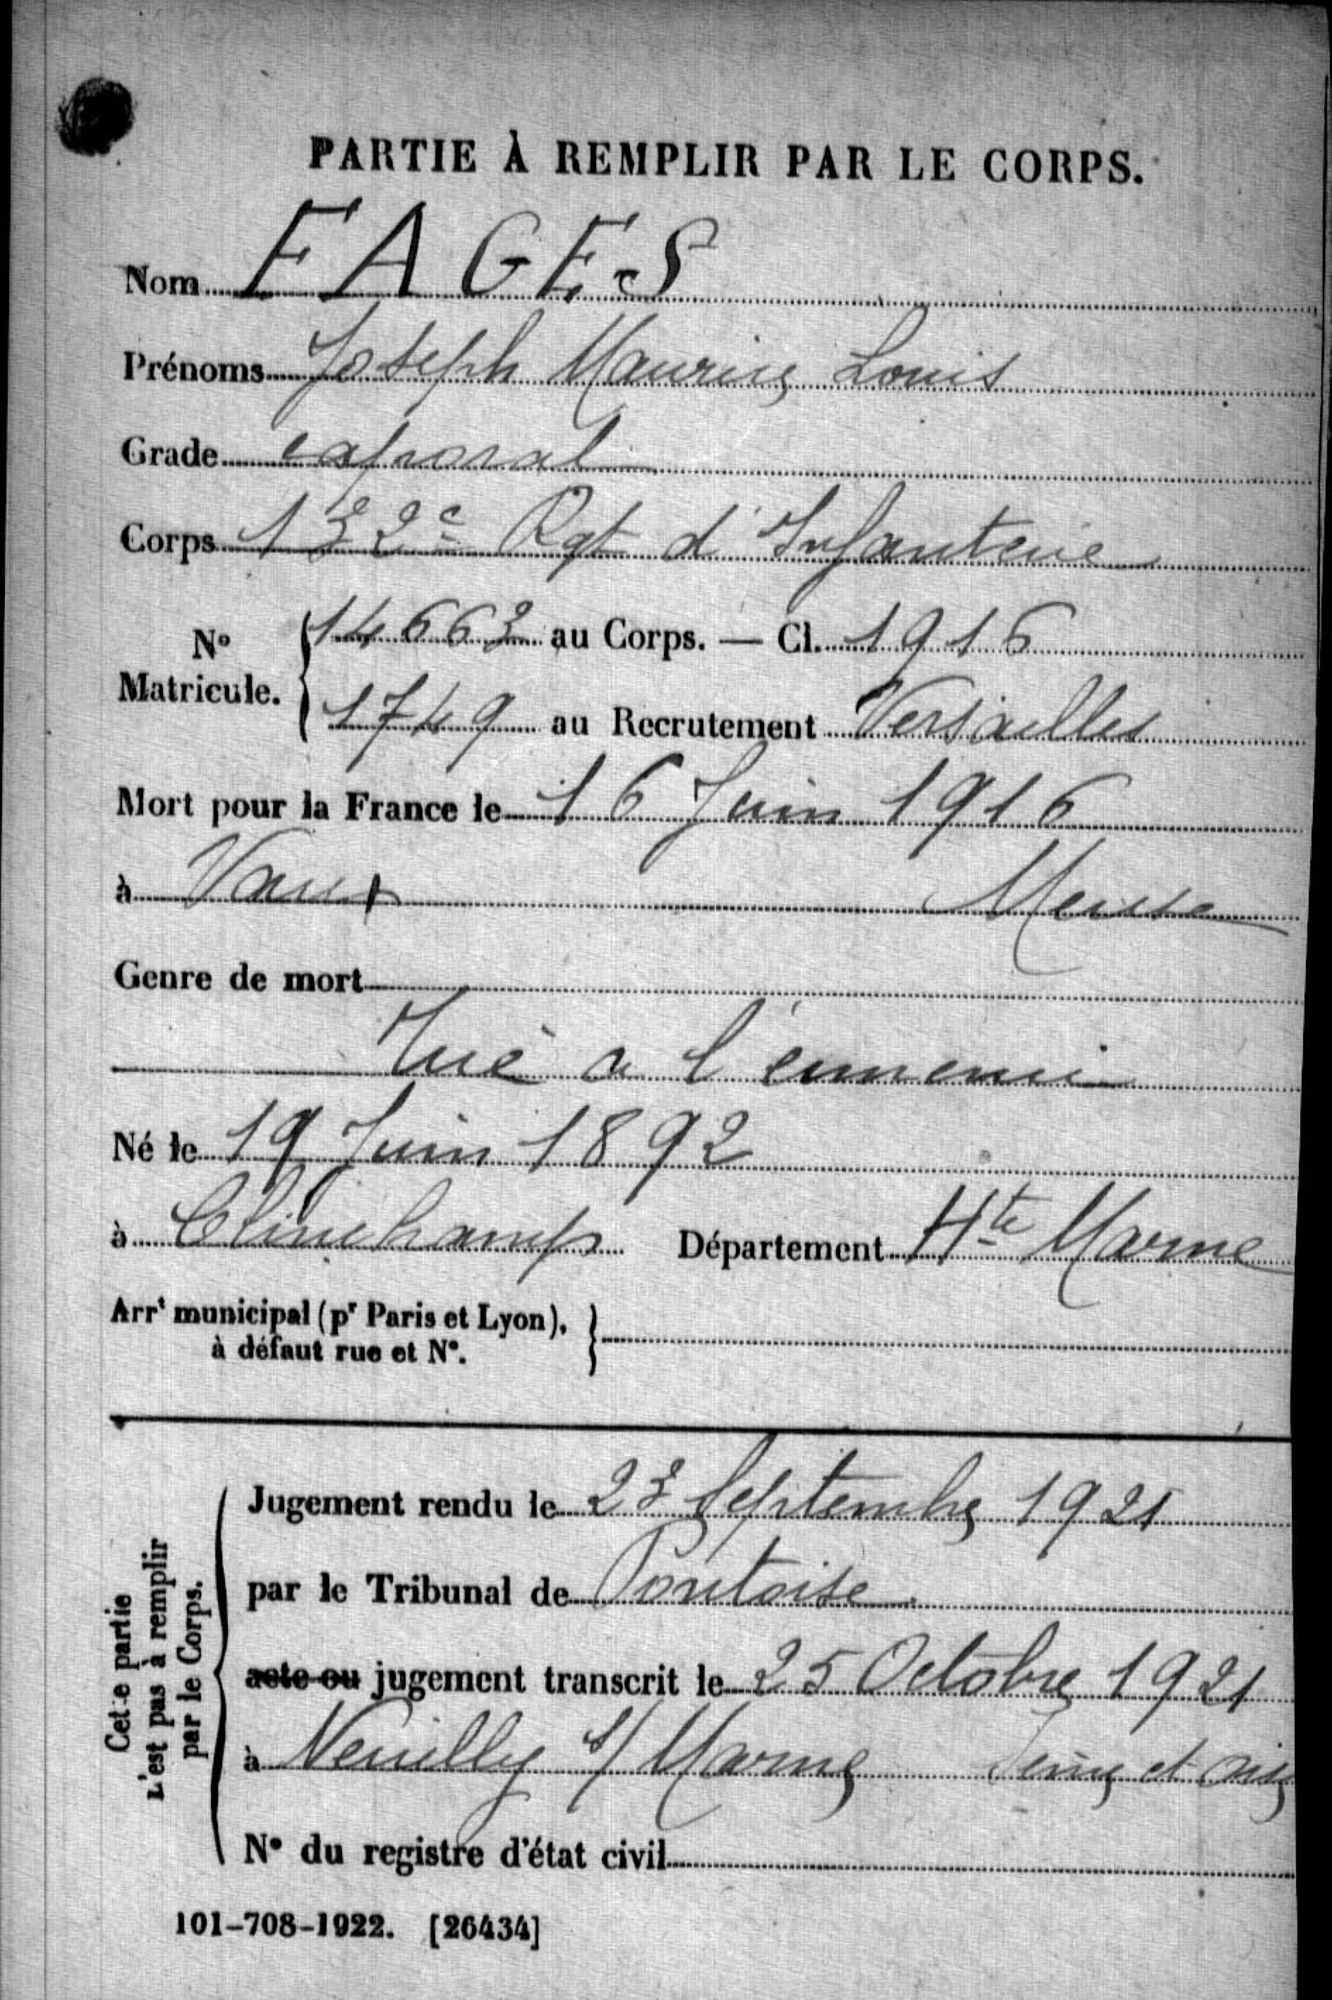 PARTIE À REMPLIR PAR LE CORPS.
Nom FAGES
Prénoms Joseph Maurice Louis
Grade caporal
Corps 132e Rgt d'Infanterie
N° Matricule. 14663 au Corps. — Cl. 1916
1749 au Recrutement Versailles
Mort pour la France le 16 Juin 1916
à Vaux Meuse
Genre de mort
Tué a l'ennemi
Né le 19 Juin 1892
à Clinchamps Département Hte Marne
Arrt municipal (pr Paris et Lyon),
à défaut rue et N°.
Cette partie
n'est pas à remplir
par le Corps.
Jugement rendu le 23 Septembre 1921
par le Tribunal de Pontoise.
acte ou jugement transcrit le 25 Octobre 1921
à Neuilly s/ Marne Seine et oise
N° du registre d'état civil
101-708-1922. [26434]